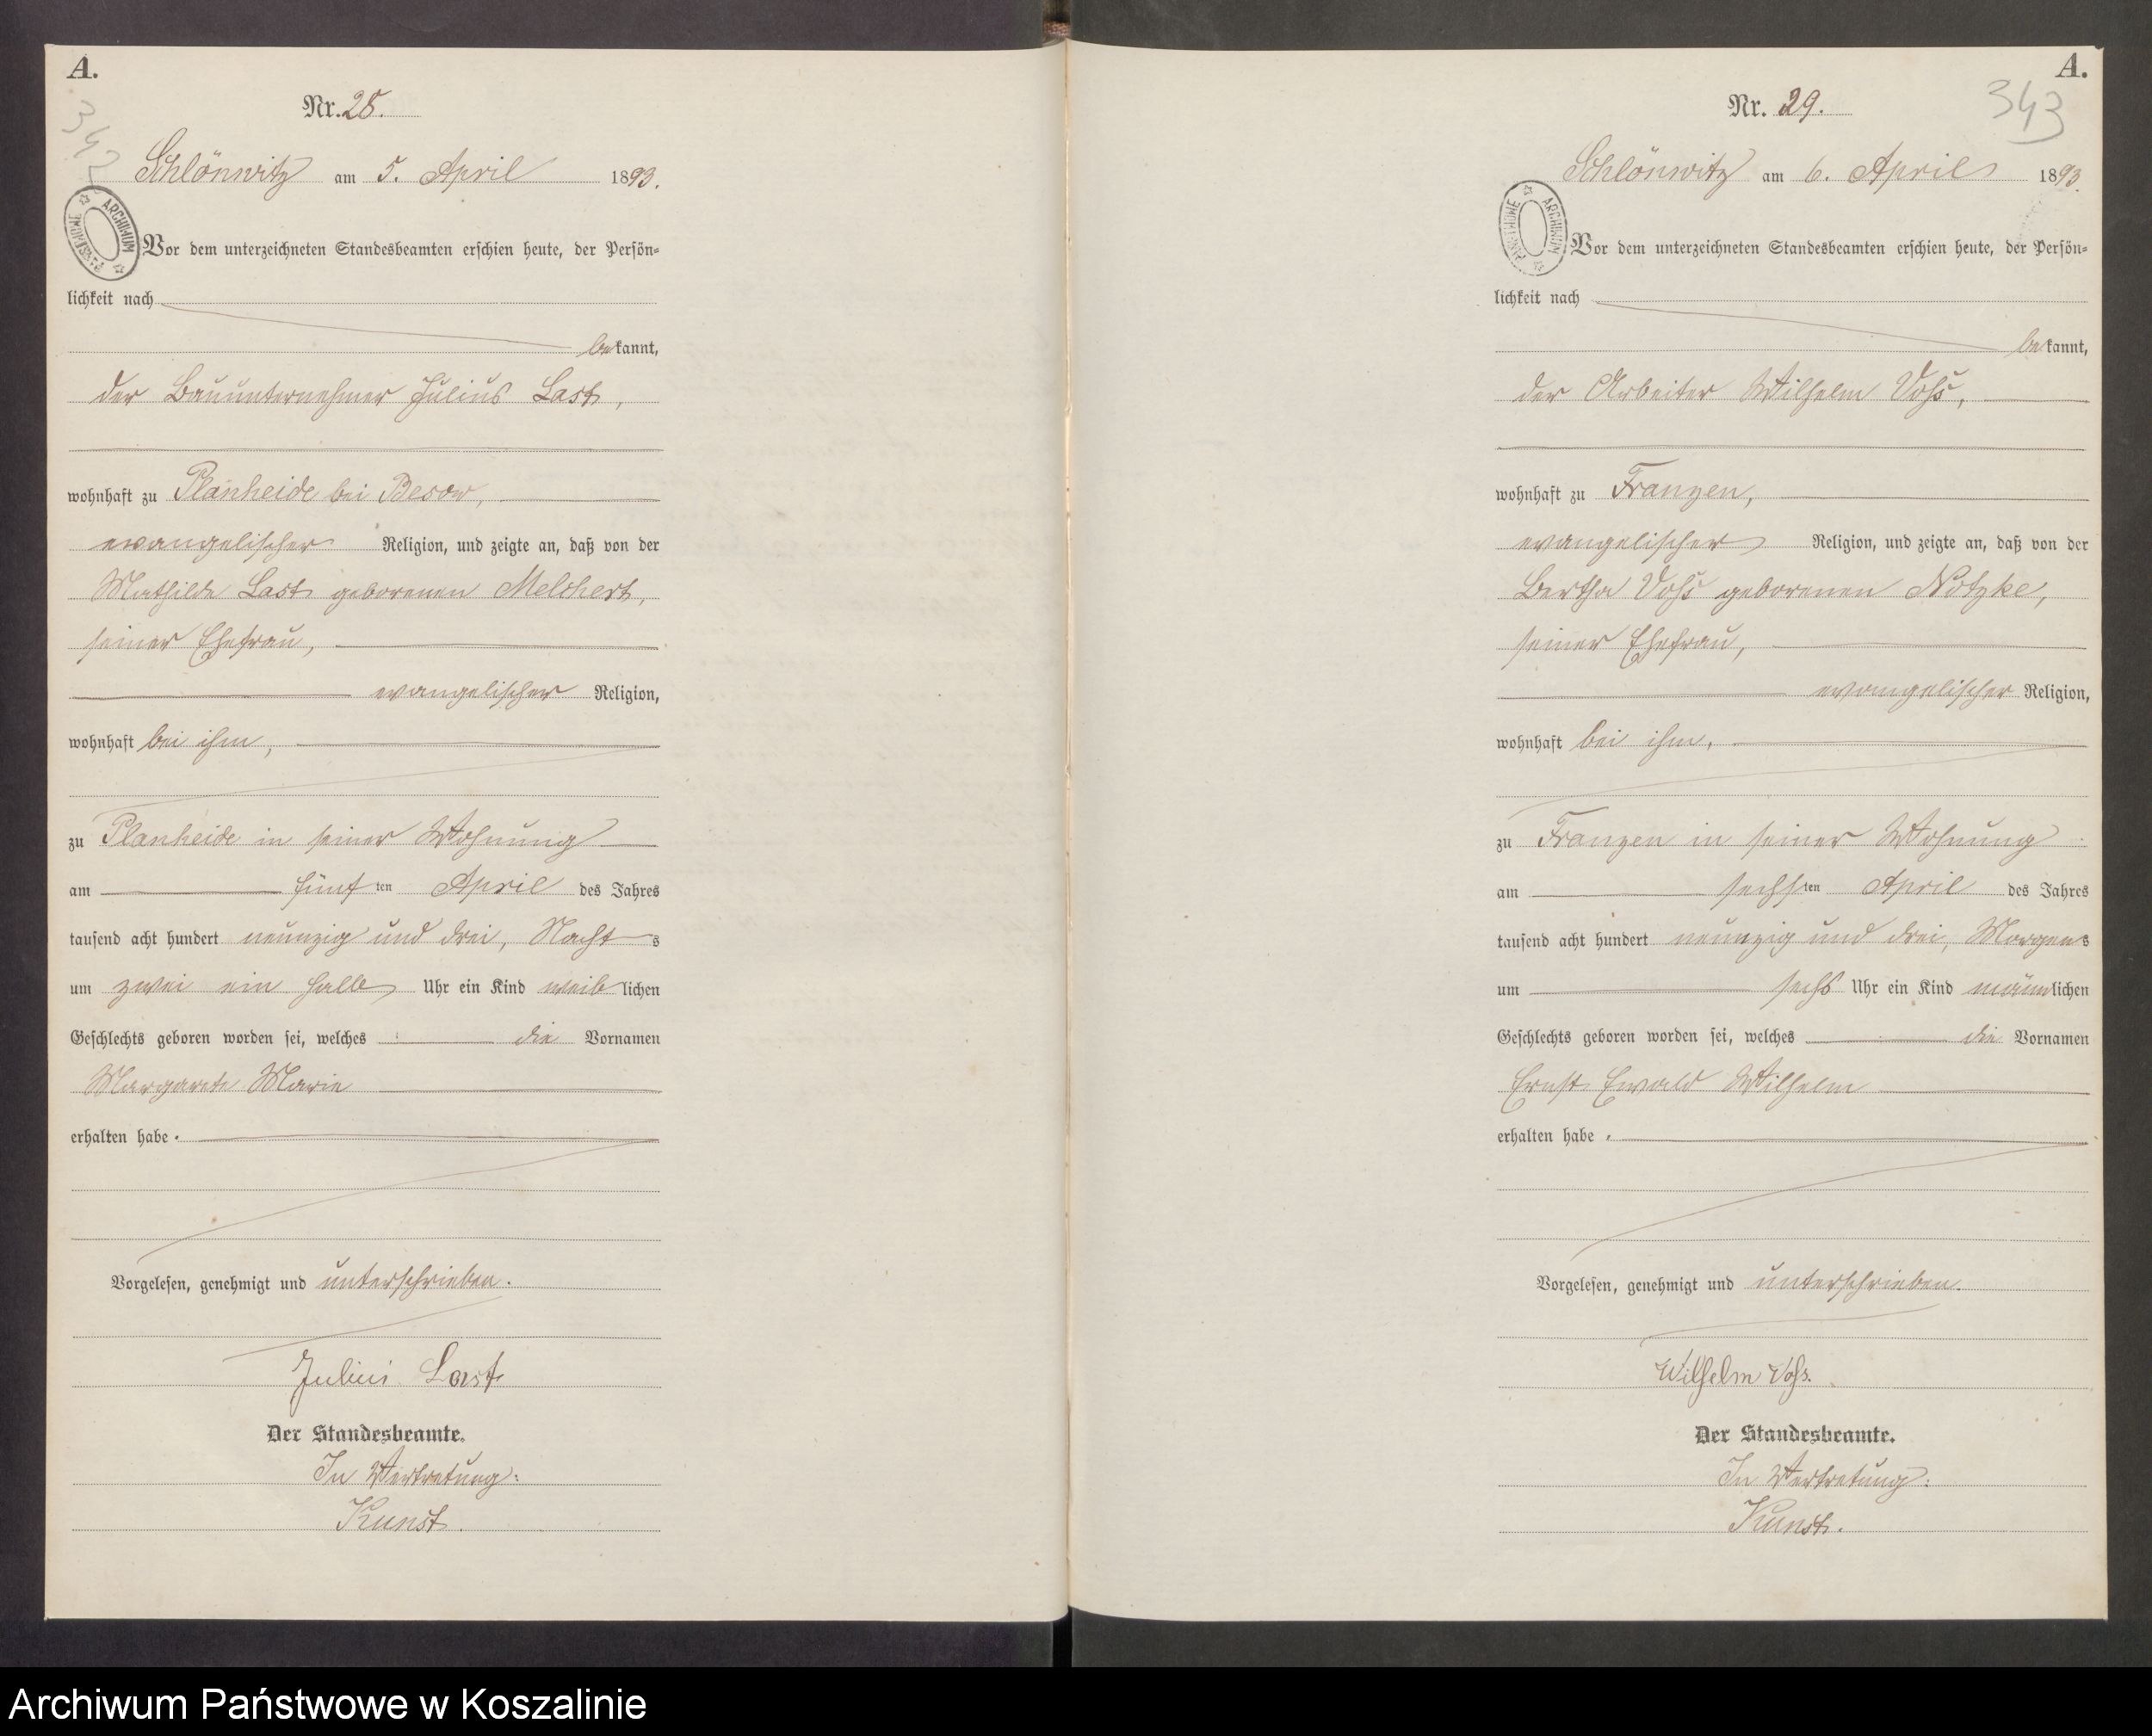 A.
342
Nr. 28.
Schlönwitz am 5. April 1893.
ARCHIWUM PAŃSTWOWE
Vor dem unterzeichneten Standesbeamten erschien heute, der Persön-
lichkeit nach
bekannt,
der Bauunternehmer Julius Last,
wohnhaft zu Planheide bei Besow,
evangelischer Religion, und zeigte an, daß von der
Mathilde Last geborenen Melchert,
seiner Ehefrau,
evangelischer Religion,
wohnhaft bei ihm,
zu Planheide in seiner Wohnung
am fünften April des Jahres
tausend acht hundert neunzig und drei, Nachts
um zwei ein halb Uhr ein Kind weiblichen
Geschlechts geboren worden sei, welches die Vornamen
Margarete Marie
erhalten habe.
Vorgelesen, genehmigt und unterschrieben.
Julius Last
Der Standesbeamte.
In Vertretung:
Kunst.
A.
343
Nr. 29.
Schlönwitz am 6. April 1893.
ARCHIWUM PAŃSTWOWE
Vor dem unterzeichneten Standesbeamten erschien heute, der Persön-
lichkeit nach
bekannt,
der Arbeiter Wilhelm Voß,
wohnhaft zu Franzen,
evangelischer Religion, und zeigte an, daß von der
Bertha Voß geborenen Notzke,
seiner Ehefrau,
evangelischer Religion,
wohnhaft bei ihm,
zu Franzen in seiner Wohnung
am sechsten April des Jahres
tausend acht hundert neunzig und drei, Morgens
um sechs Uhr ein Kind männlichen
Geschlechts geboren worden sei, welches die Vornamen
Ernst Ewald Wilhelm
erhalten habe.
Vorgelesen, genehmigt und unterschrieben.
Wilhelm Voß.
Der Standesbeamte.
In Vertretung:
Kunst.
Archiwum Państwowe w Koszalinie